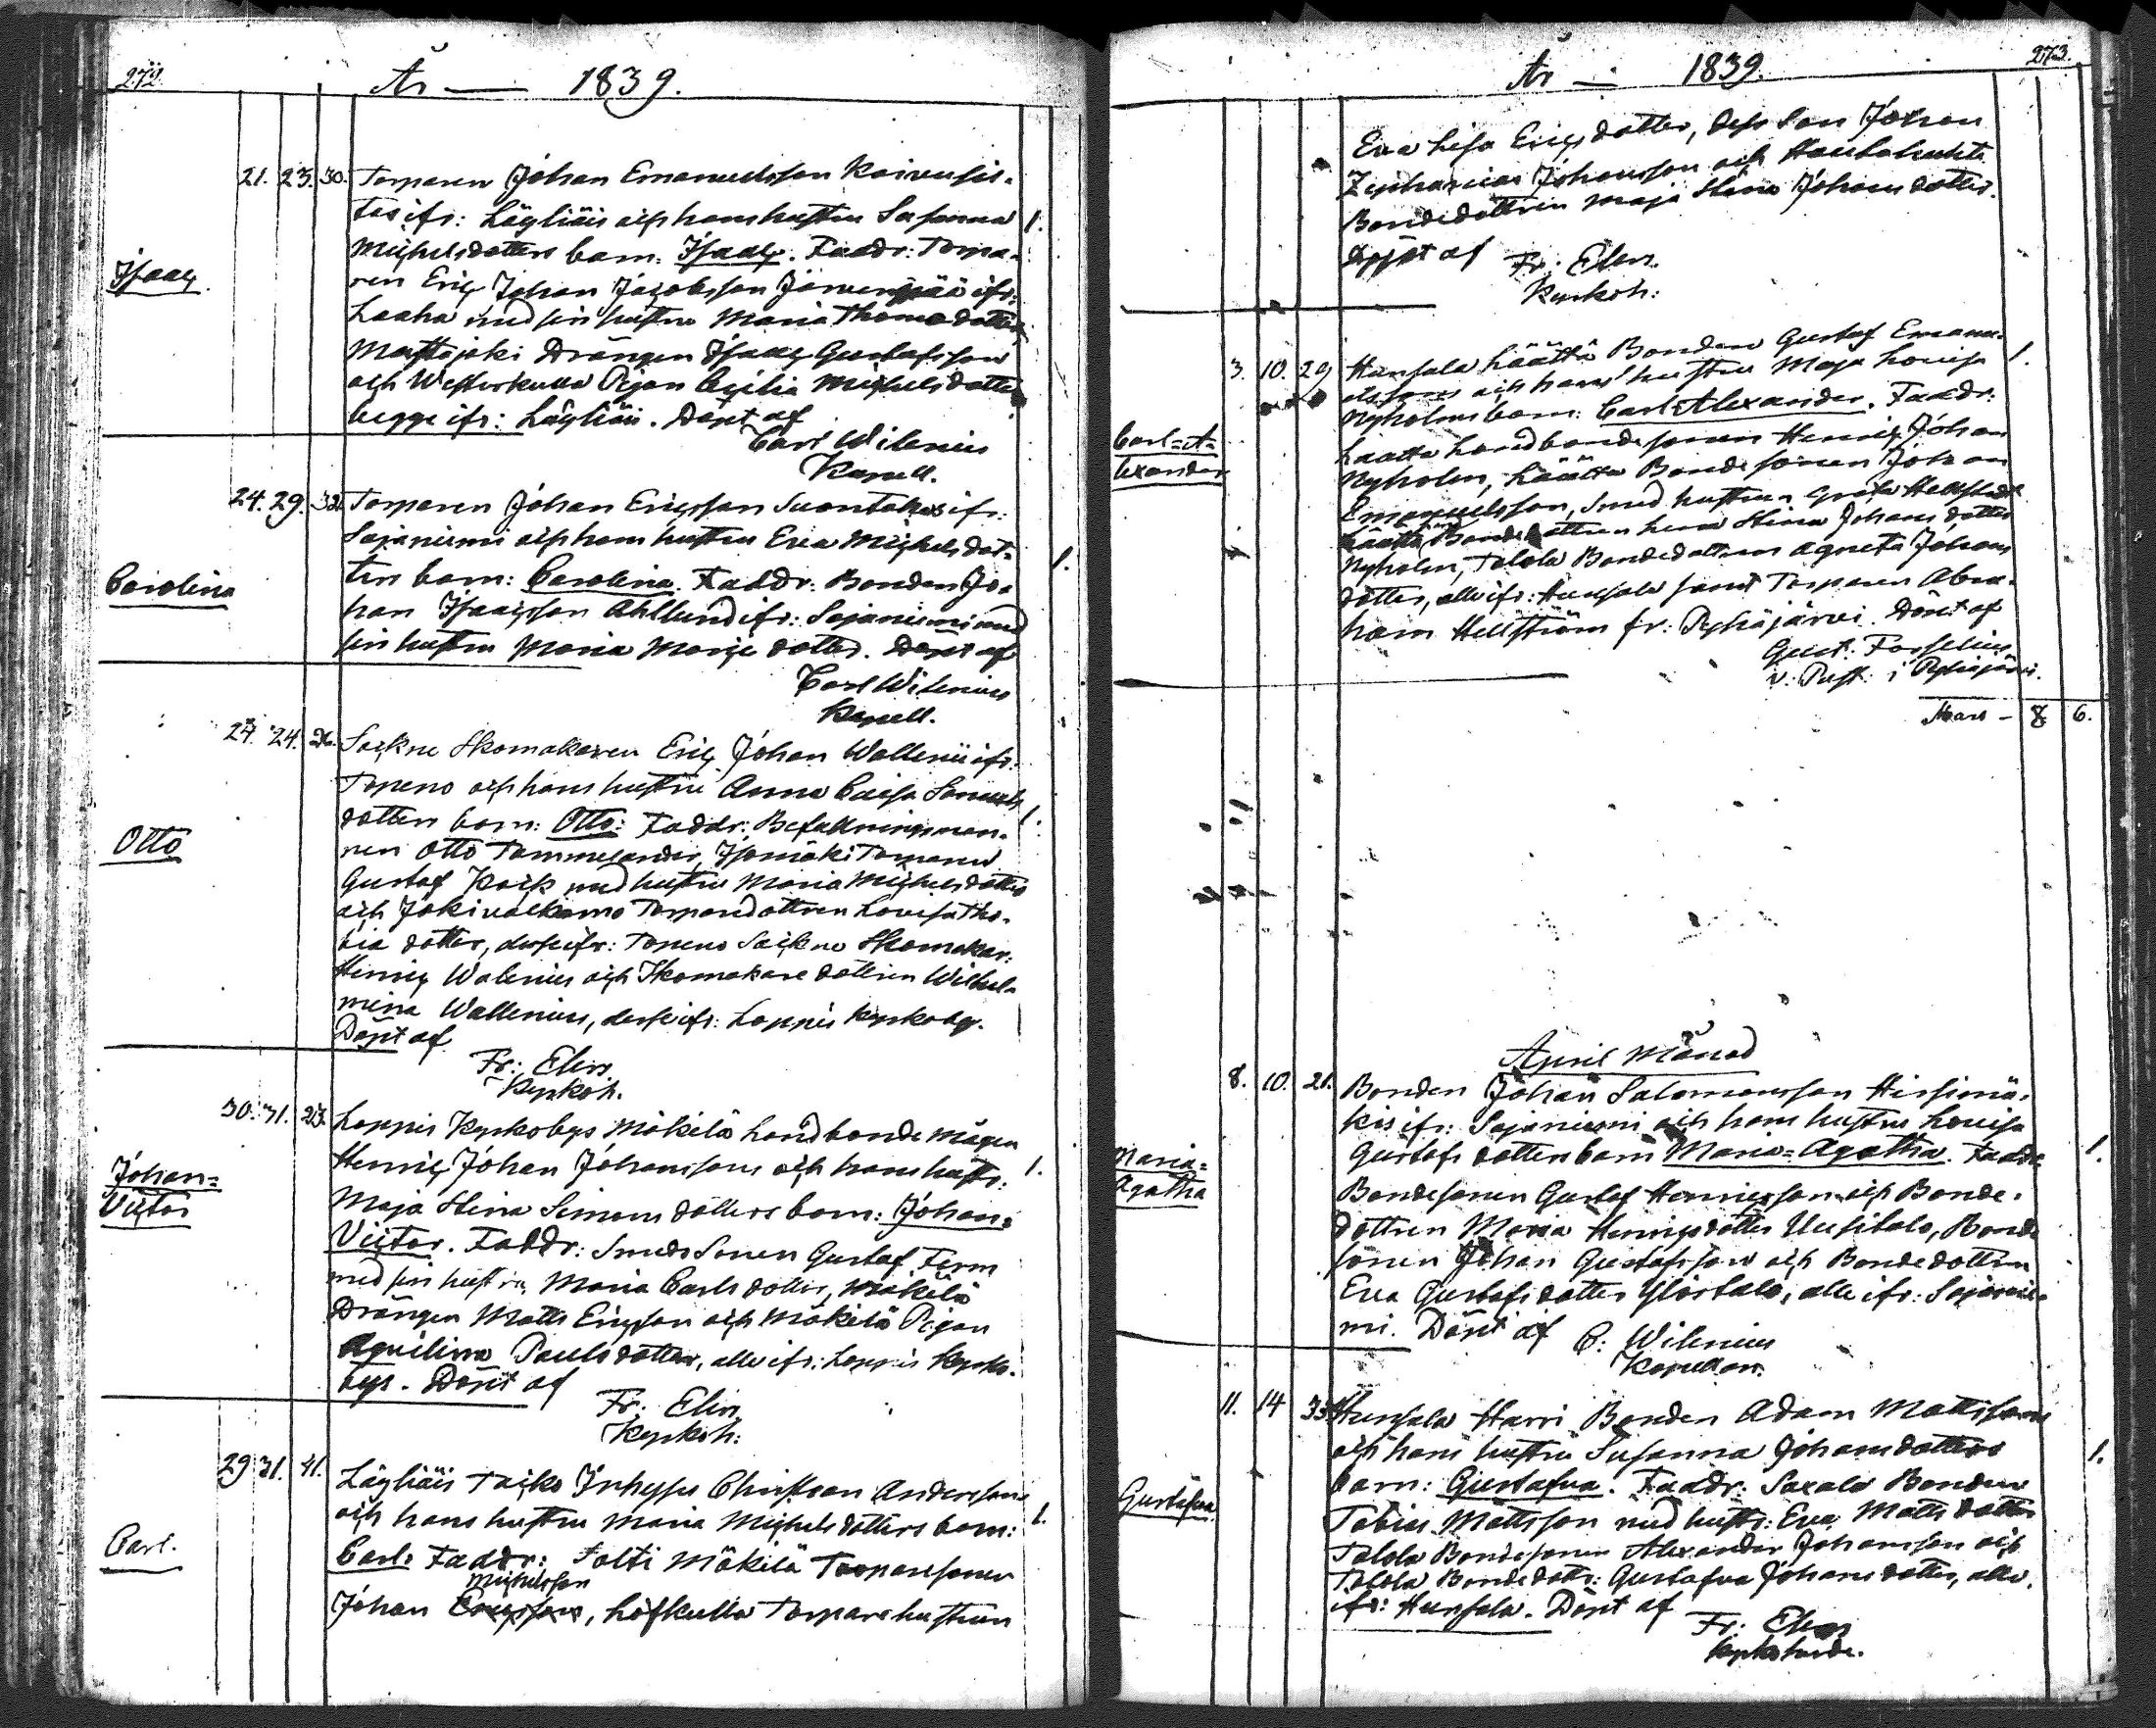 272.
År — 1839.
Isaac
21. 23. 30. Torparen Johan Emanuelsson Koivusil-
tas ifr: Läyliäis och hans hustru Susanna 1.
Michelsdotters barn: Isaac. Faddr: Torpa-
ren Eric Johan Jacobsson Järvenpää ifr:
Laaha med sin hustru Maria Thomedotter,
Myttäjoki Drängen Isaac Gustafsson
och Westerkulla Pigan Cecilia Michelsdotter
begge ifr: Läyliäis. Döpt af
Carl Wilenius
Kapell.
Carolina
24. 29. 32. Torparen Johan Ericsson Suontakas ifr:
Sajaniemi och hans hustru Eva Michelsdot-
ters barn: Carolina. Faddr: Bonden Jo- 1.
han Isaacsson Ahllund ifr: Sajaniemi med
sin hustru Maria dotter. Döpt af
Carl Wilenius
Kapell.
Otto
24. 24. 26. Sockne Skomakaren Eric Johan Wallenii ifr:
Topeno och hans hustru Anna Caisa Samuels
dotters barn: Otto: Faddr: Befallningsman- 1.
nen Otto Tammelander, Isomäki Torparen
Gustaf Kock med hustru Maria Michelsdotter
och Jokivalkamo Torparedottren Lovisa Tho-
bia dotter, desse ifr: Topeno Sockne Skomakar:
Henric Walenius och Skomakare dottren Wilhel-
mina Wallenius, desse ifr: Loppis Kyrkoby.
Döpt af
Fr: Elers
Kyrkoh.
Johan=
Victor
30. 31. 23. Loppis Kyrkobys Mäkilä Landbonde Mågen
Henric Johan Johanssons och hans hustr: 1.
Maja Stina Simons dotters barn: Johan=
Victor. Faddr: Smeds Sonen Gustaf Ferm
med sin hustru Maria Carls dotter, Mäkilä
Drängen Matts Ericsson och Mäkilä Pigan
Aquilina Pauls dotter, alle ifr: Loppis Kyrko-
bys. Döpt af
Fr: Elers
Kyrkoh:
Carl.
29 31. 41. Läyliäis Inhyses Christian Anderssons
och hans hustru Maria Michels dotters barn: 1.
Carl: Faddr: Mäkilä Torparesonen
Michelsson
Johan Ericsson, Löfkulla Torpare hustrun
273.
År — 1839.
Eva Lisa Erics dotter, dess Son Johan
Zacharias Johansson och
Bondedottren Maja Stina Johans dotter.
Döpt af Fr: Elers
Kyrkoh:
Carl=A=
lexander
3. 10. 29 Hunsala Läättä Bonden Gustaf Emanu- 1.
elssons och hans hustru Maja Lovisa
Nyholms barn: Carl Alexander. Faddr:
Laatta Landbondesonen Henric Johan
Nyholm, Läättä Bondesonen Johan
Emanuelsson, Smed hustrun Greta
Läättä Bondedottren Lena Stina Johans dotter
Nyholm, Talola Bondedottren Agneta Johans
dotter, alle ifr: Hunsala samt Torparen Abra-
ham Hellström fr: Pyhäjärvi. Döpt af
Gust: Forselius
v: Past: i Pyhäjärvi.
Mars — 8 6.
April Månad
Maria=
Agatha
8. 10. 21. Bonden Johan Salomonsson Hirsimä-
kis ifr: Sajaniemi och hans hustru Lovisa
Gustafs dotters barn Maria=Agatha. Faddr: 1.
Bondesonen Gustaf Henricsson och Bonde-
dottren Maria Henricsdotter Uusitalo, Bonde
sonen Johan Gustafsson och Bondedottren
Eva Gustafs dotter Ylöstalo, alle ifr: Sajanie-
mi. Döpt af C: Wilenius
Kapellan.
Gustafva
11. 14 33 Hunsala Harri Bonden Adam Mattssons
och hans hustru Susanna Johansdotters 1.
barn: Gustafva. Faddr: Saxala Bonden
Tobias Mattsson med hustr: Eva Matts dotter
Talola Bondesonen Alexander Johansson och
Talola Bondedottr: Gustafva Johans dotter, alle
ifr: Hunsala. Döpt af Fr: Elers
Kyrkoherde.